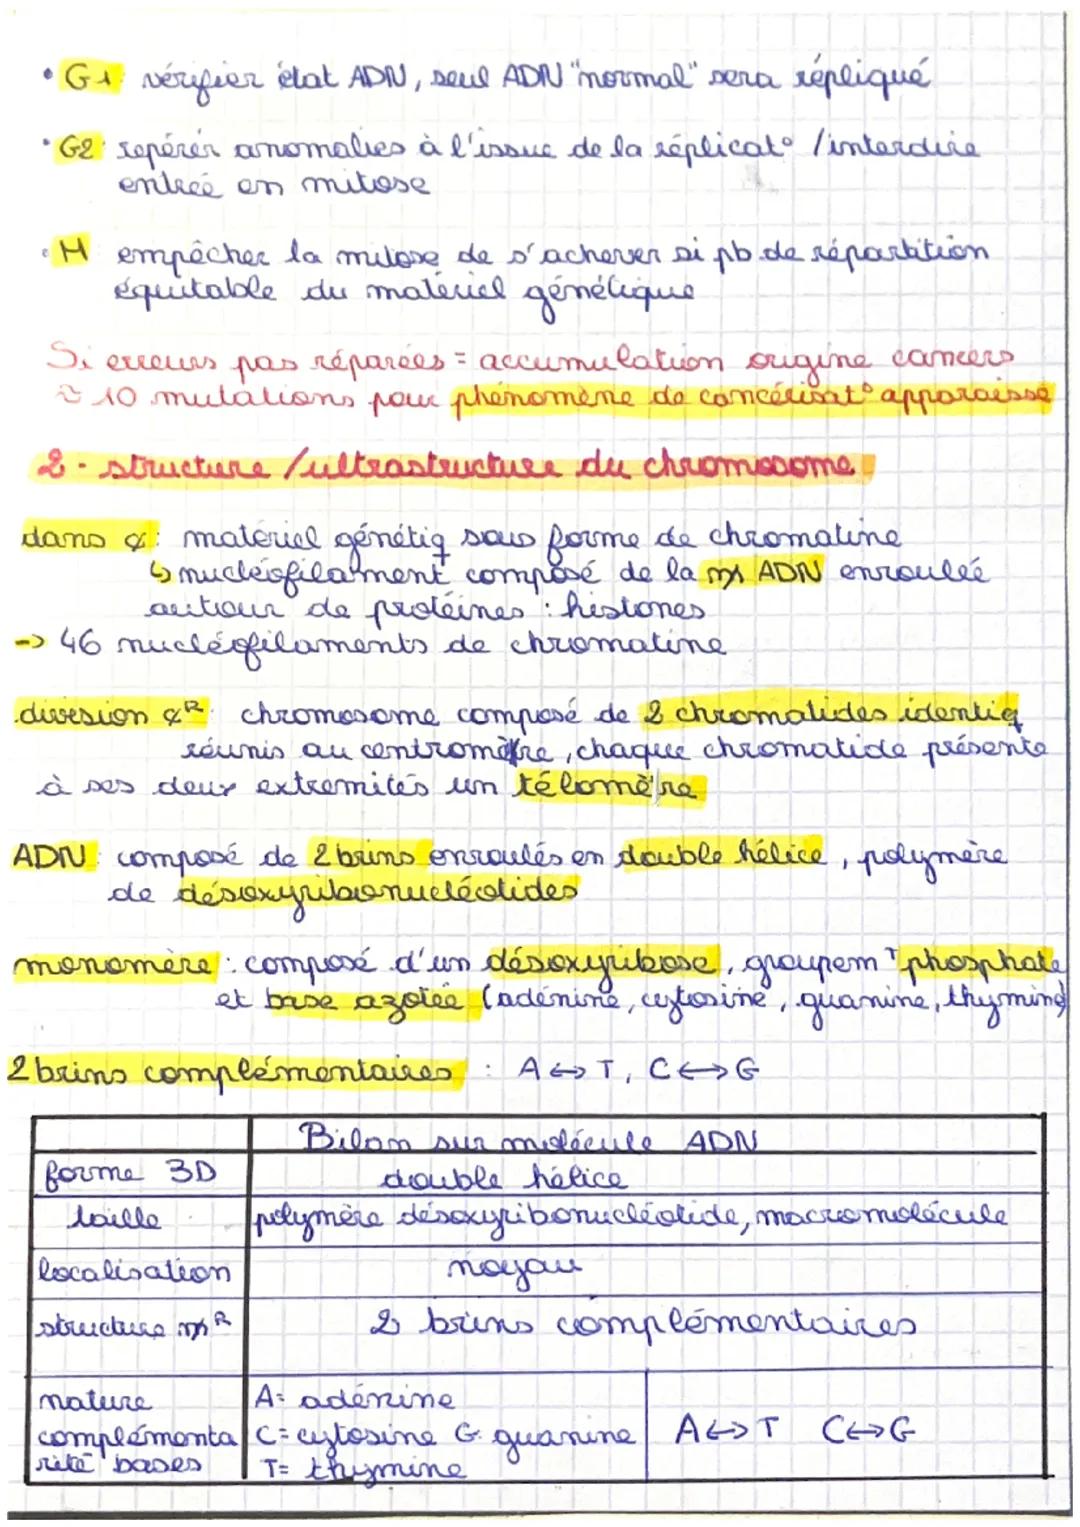 • G1 vérifier état ADN, seul ADN "normal" sera répliqué
• G2 repérér anomalies à l'issue de la réplicat° / interdire
entrée en mitose
• M empêcher la mitose de s'achever si pb de répartition
équitable du matériel génétique
Si erreurs pas réparées = accumulation origine cancers
≈ 10 mutations pour phénomène de cancérisat° apparaisse
2 - structure / ultrastructure du chromosome
dans : matériel génétiq sous forme de chromatine
↳ nucléofilament composé de la ADN enroulée
autour de protéines : histones
-> 46 nucléofilaments de chromatine
division : chromosome composé de 2 chromatides identiq
réunis au centromère, chaque chromatide présente
à ses deux extremités un télomère
ADN : composé de 2 brins enroulés en double hélice, polymère
de désoxyribonucléotides
monomère : composé d'un désoxyribose, groupem T phosphate
et base azotée (adénine, cytosine, guanine, thymine)
2 brins complémentaires : A ↔ T, C ↔ G
Bilan sur molécule ADN
forme 3D double hélice
taille polymère désoxyribonucléotide, macromolécule
localisation noyau
structure 2 brins complémentaires
nature A= adénine
complémenta C= cytosine G= guanine A ↔ T C ↔ G
rité bases T= thymine